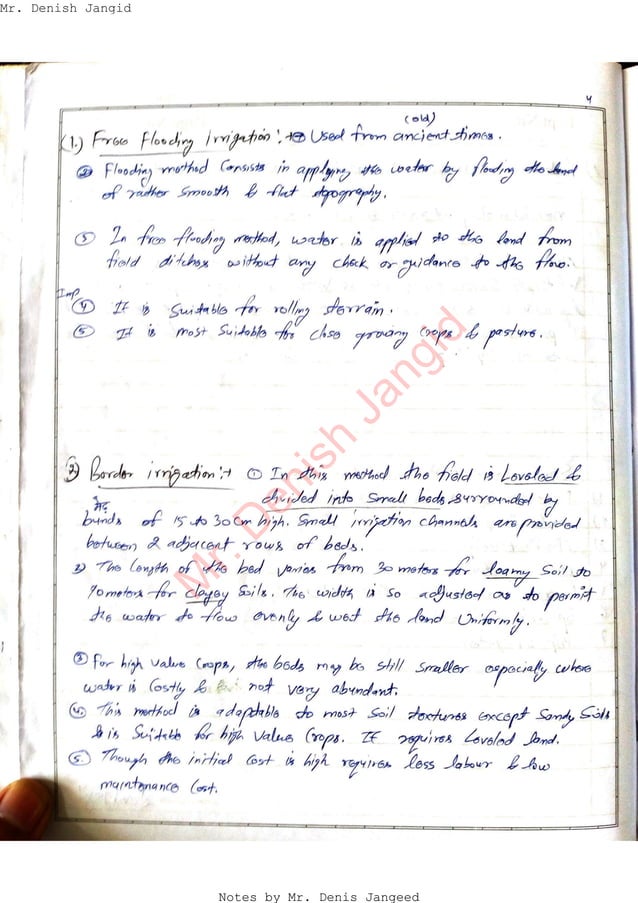 Mr. Denish Jangid
4
(old)
(1.) Free Flooding Irrigation :→ ① Used from ancient times.
② Flooding method Consists in applying the water by flooding the land
of rather smooth & flat topography.
③ In free flooding method, water is applied to the land from
field ditches without any check or guidance to the flow.
Imp
④ It is Suitable for rolling terrain.
⑤ It is most Suitable for close growing Crops & pasture.
Mr. Denish Jangid
② Border irrigation :→ ① In this method the field is Leveled &
divided into Small beds surrounded by
मेड़
bunds of 15 to 30 cm high. Small irrigation channels are provided
between 2 adjacent rows of beds.
2) The Length of the bed varies from 30 meters for loamy Soil to
90 meters for clayey Soils. The width is so adjusted as to permit
the water to flow evenly & wet the land Uniformly.
③ For high value Crops, the beds may be still smaller especially where
water is Costly & not very abundant.
④ This method is adaptable to most Soil textures except Sandy Soils
& is Suitable for high value Crops. It requires Leveled land.
⑤ Though the initial Cost is high requires less labour & low
maintenance Cost.
Notes by Mr. Denis Jangeed